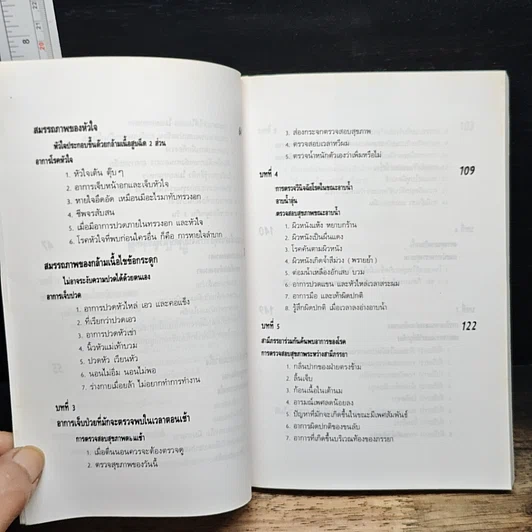 สมรรถภาพของหัวใจ
หัวใจประกอบขึ้นด้วยกล้ามเนื้อสูบฉีด 2 ส่วน
อาการโรคหัวใจ
1. หัวใจเต้น ตุ๊บๆ
2. อาการเจ็บหน้าอกและเจ็บหัวใจ
3. หายใจอึดอัด เหมือนมีอะไรมาทับทรวงอก
4. ชีพจรสับสน
5. เมื่อมีอาการปวดภายในทรวงอก และหัวใจ
6. โรคหัวใจที่พบก่อนใครอื่น ก็คือ การหายใจลำบาก
สมรรถภาพของกล้ามเนื้อไขข้อกระดูก
ไม่อาจระงับความปวดได้ด้วยตนเอง
อาการเจ็บปวด
1. อาการปวดหัวไหล่ เอว และคอแข็ง
2. ที่เรียกว่าปวดเอว
3. อาการปวดหัวเข่า
4. นิ้วหัวแม่เท้าบวม
5. ปวดหัว เวียนหัว
6. นอนไม่อิ่ม นอนไม่พอ
7. ร่างกายเมื่อยล้า ไม่อยากทำการทำงาน
บทที่ 3
อาการเจ็บป่วยที่มักจะตรวจพบในเวลาตอนเช้า
การตรวจสอบสุขภาพตอนเช้า
1. เมื่อตื่นนอนควรจะต้องตรวจดู
2. ตรวจสุขภาพของวันนี้
3. ส่องกระจกตรวจสอบสุขภาพ
4. ตรวจสอบเวลาหวีผม
5. ตรวจน้ำหนักตัวเองว่าเพิ่มหรือไม่
บทที่ 4 109
การตรวจวินิจฉัยโรคในขณะอาบน้ำ
อาบน้ำอุ่น
ตรวจสอบสุขภาพขณะอาบน้ำ
1. ผิวหนังแห้ง หยาบกร้าน
2. ผิวหนังเป็นผื่นแดง
3. โรคคันตามผิวหนัง
4. ผิวหนังเกิดจ้ำสีม่วง ( พรายย้ำ )
5. ต่อมน้ำเหลืองอักเสบ บวม
6. อาการปวดแขน และหัวไหล่เวลาสระผม
7. อาการมือ และเท้าผิดปกติ
8. รู้สึกผิดปกติ เมื่อเวลาลงอ่างอาบน้ำ
บทที่ 5 122
สามีภรรยาร่วมกันค้นพบอาการของโรค
การตรวจสอบสุขภาพระหว่างสามีภรรยา
1. กลิ่นปากของฝ่ายตรงข้าม
2. ลิ้นเจ็บ
3. ก้อนเนื้อในเต้านม
4. อารมณ์เพศลดน้อยลง
5. ปัญหาที่มักจะเกิดขึ้นในขณะมีเพศสัมพันธ์
6. อาการผิดปกติของขนลับ
7. อาการที่เกิดขึ้นบริเวณท้องของภรรยา